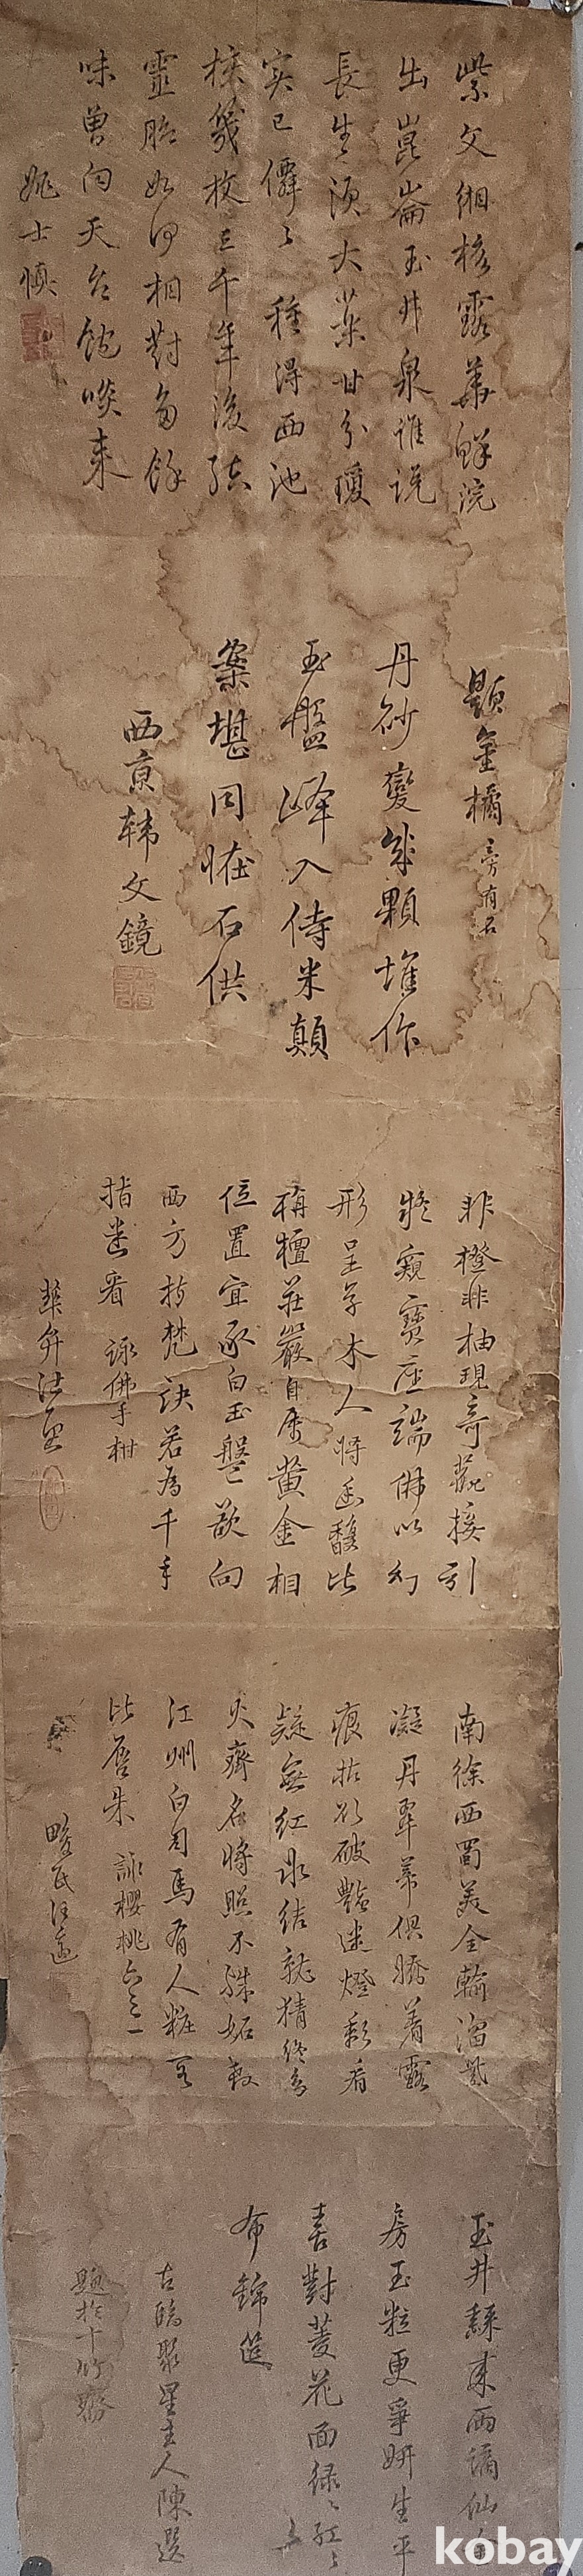 紫文緗核露華鮮浣
出崑崙玉井泉誰說
長生須大藥甘分瓊
實已僊々種得西池
核幾枚三千年後結
靈胎如何相對多餘
味曾向天台飽啖來
姚士慎
題金橘旁有石
丹砂變幾顆堆作
玉盤峰入侍米顛
案堪同怪石供
西京韩文鏡
非橙非柚現奇觀接引
疑窺寶座端佛以幻
形呈草木人將幽馥比
栴檀莊嚴自屬黃金相
位置宜承白玉盤欲向
西方拈梵訣若為千手
指迷看 詠佛手柑
南徐西蜀美全輸溜氣
凝丹翠蒂俱勝着露
痕拈欲破豔迷燈影看
疑無紅冰結就猜終
火齊名將照不殊妬殺
江州白司馬有人粧
比唇朱 詠櫻桃
玉井移來兩謫仙
房玉粒更爭妍生平
喜對菱花面綠々紅々
布錦筵
古臨聚星主人陳選
題於十竹齋
kobay